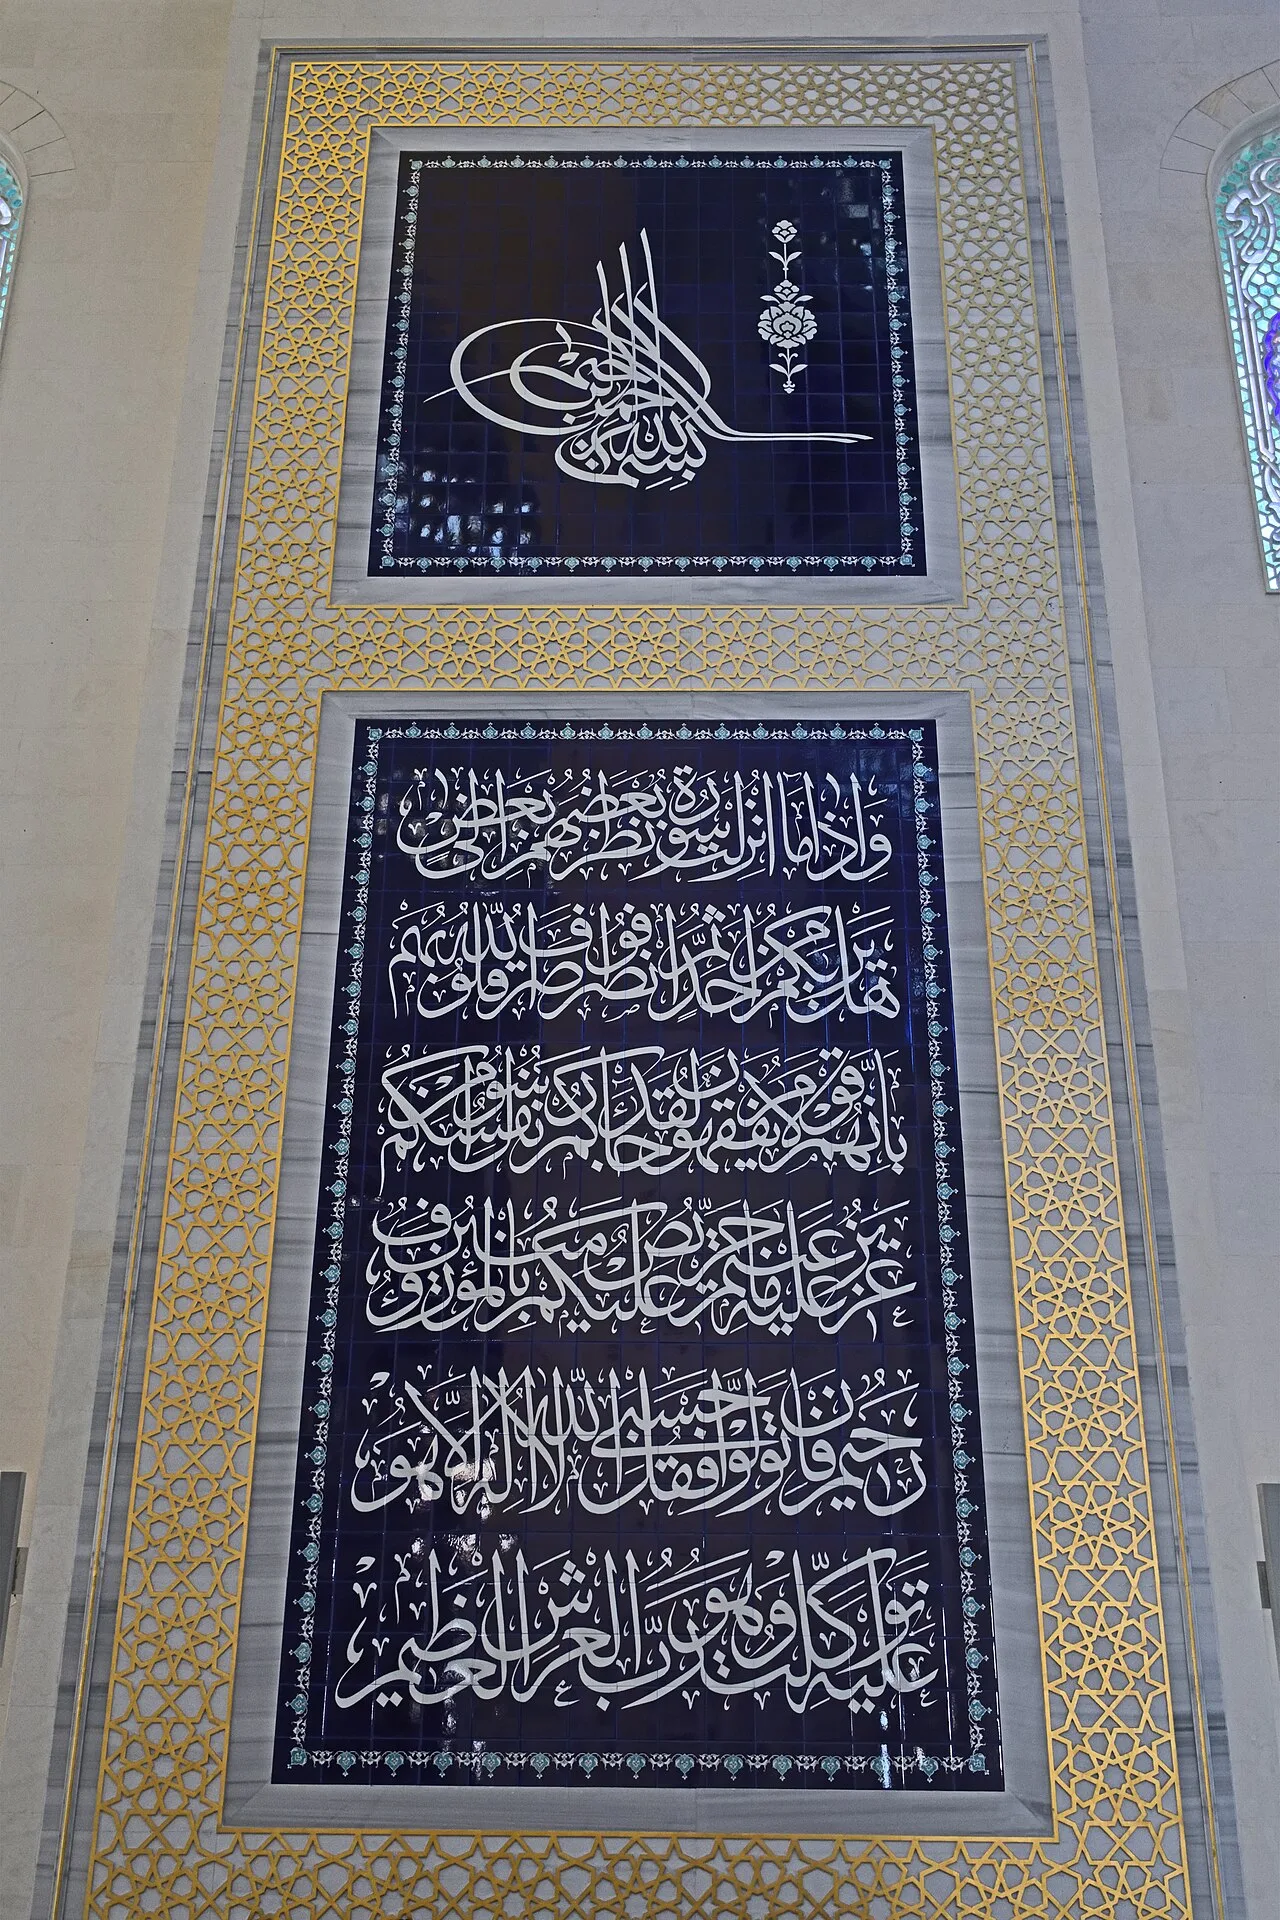 بسم الله الرحمن الرحيم
وَإِذَا مَا أُنْزِلَتْ سُورَةٌ نَظَرَ بَعْضُهُمْ إِلَى بَعْضٍ
هَلْ يَرَاكُمْ مِنْ أَحَدٍ ثُمَّ انْصَرَفُوا صَرَفَ اللَّهُ قُلُوبَهُمْ
بِأَنَّهُمْ قَوْمٌ لَا يَفْقَهُونَ لَقَدْ جَاءَكُمْ رَسُولٌ مِنْ أَنْفُسِكُمْ
عَزِيزٌ عَلَيْهِ مَا عَنِتُّمْ حَرِيصٌ عَلَيْكُمْ بِالْمُؤْمِنِينَ رَؤُوفٌ
رَحِيمٌ فَإِنْ تَوَلَّوْا فَقُلْ حَسْبِيَ اللَّهُ لَا إِلَهَ إِلَّا هُوَ
عَلَيْهِ تَوَكَّلْتُ وَهُوَ رَبُّ الْعَرْشِ الْعَظِيمِ